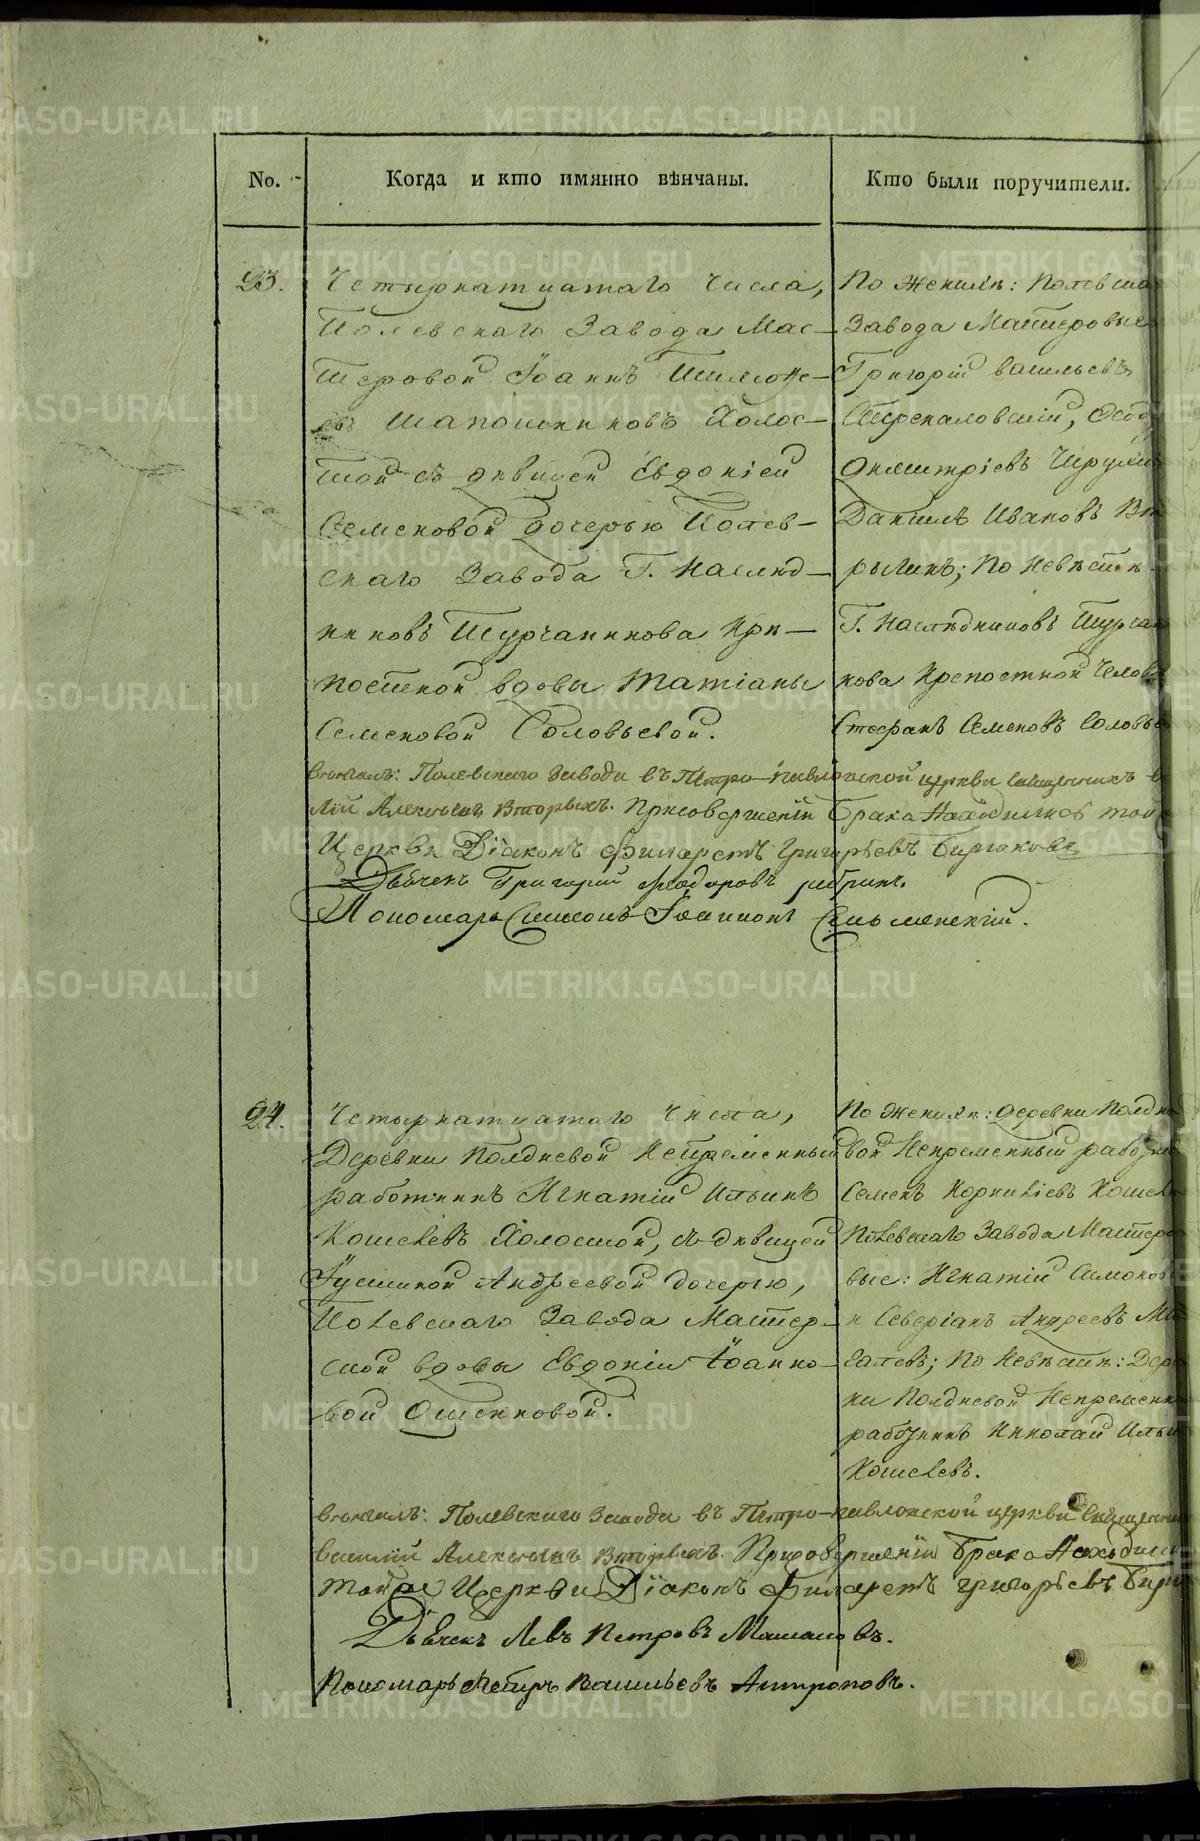 No.
Когда и кто имянно вѣнчаны.
Кто были поручители.
23.
Четырнатцатаго числа,
Полевскаго Завода Мас-
теровой Іоаннъ Тимофе-
евъ Шапошниковъ Холос-
той съ дѣвицей Евдокіей
Семеновой дочерью Полев-
скаго Завода Г. Наслѣд-
никовъ Турчанинова Крѣ-
постной вдовы Татіаны
Семеновой Соловьевой.
По женихѣ: Полевска
Завода Мастеровые
Григорій Васильевъ
Димитріевъ
Даніилъ Ивановъ Вт
рыхинъ; По Невѣстѣ
Г. Наслѣдниковъ Турча
нова Крепостной Челов
Стефанъ Семеновъ Соловье
вѣнчалъ: Полевскаго Завода въ Петро-павловской церкви священникъ
лій Алексѣевъ Вторыхъ. При совершеніи Брака Находились той
Церкви Діаконъ Филаретъ Григорьевъ Бирюковъ
Дьячекъ Григорій Федоровъ
Пономарь Симеонъ Іоанновъ
24.
Четырнатцатаго числа,
Деревни Полдневой Непременный
работникъ Игнатій Ильинъ
Кошелевъ Холостой, съ дѣвицей
Іустиной Андреевой дочерью,
Полевскаго Завода Мастер-
ской вдовы Евдокіи Іоанно-
вой
По женихѣ: деревни Полдне
вой Непременный работни
Семенъ Корниліевъ Кошеле
Полевскаго Завода Мастеро
вые: Игнатій Симонов
и Северіанъ Андреевъ
галевъ; По Невѣстѣ: Дерев
ни Полдневой Непременны
работникъ Николай Ильи
Кошелевъ.
вѣнчалъ: Полевскаго Завода въ Петро-павловской церкви Священни
василій Алексѣевъ Вторыхъ. При совершеніи Брака Находили
той же Церкви Діаконъ Филаретъ григорьевъ Бирю
Дьячекъ Левъ Петровъ
Пономарь Петръ Васильевъ Антроповъ.
METRIKI.GASO-URAL.RU